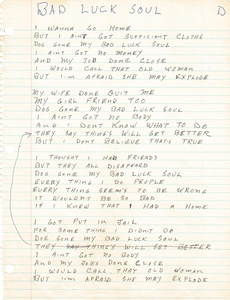 BAD LUCK SOUL
D
I WANNA GO HOME
BUT I AIN'T GOT SUFFICIANT CLOTHS
DOG GONE MY BAD LUCK SOUL
I AINT GOT NO MONEY
AND MY JOB DONE CLOSE
I WOULD CALL THAT OLD WOMAN
BUT I'M AFRAID SHE MAY EXPLODE
MY WIFE DONE QUIT ME
MY GIRL FRIEND TOO
DOG GONE MY BAD LUCK SOUL
I AINT GOT NO BODY
AND I DON'T KNOW WHAT TO DO
THEY SAY THINGS WILL GET BETTER
BUT I DON'T BELIEVE THAT'S TRUE
I THOUGHT I HAD FRIENDS
BUT THEY ALL DISAPPEARD
DOG GONE MY BAD LUCK SOUL
EVERY THING I DO PEOPLE
EVERY THING SEEMS TO BE WRONG
IT WOULDN'T BE SO BAD
IF I KNEW THAT I HAD A HOME
I GOT PUT IN JAIL
FOR SOME THING I DIDN'T DO
DOG GONE MY BAD LUCK SOUL
THEY SAY THINGS WILL GET BETTER
I AINT GOT NO BODY
AND MY JOBS DONE CLOSE
I WOULD CALL THAT OLD WOMAN
BUT I'M AFRAID SHE MAY EXPLODE